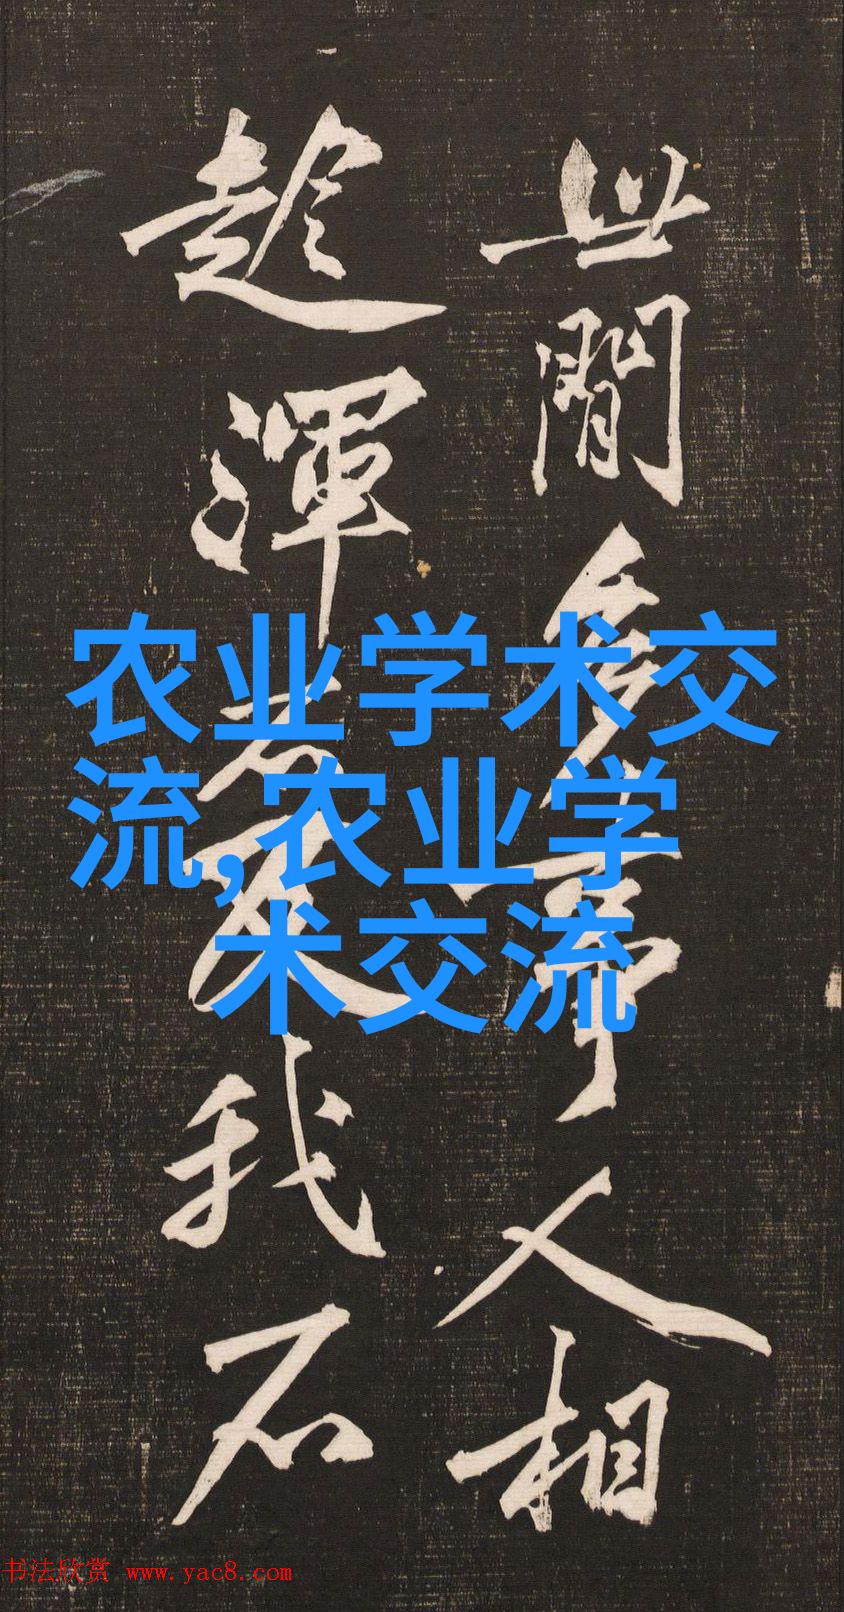 世間多事人相
趁渾我石
农业学术交
流,农业学
术交流
书法欣赏 www.yac8.com